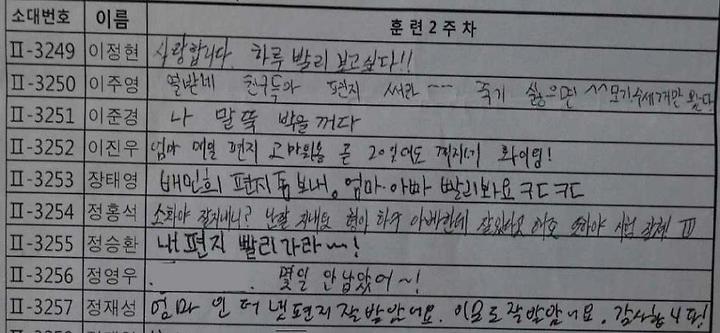 소대번호 이름 훈련2주차
Ⅱ-3249 이정현 사랑합니다. 하루 빨리 보고싶다!!
Ⅱ-3250 이주영 열받네 친구들아 편지 써라~~ 죽기 싫으면 ^^
Ⅱ-3251 이준경 나 말뚝 박을꺼다
Ⅱ-3252 이진우 엄마 매일 편지 고마워용 곧 20일에도 화이팅!
Ⅱ-3253 장태영 배민희 편지좀보내. 엄마.아빠 빨리봐요ㅋㄷㅋㄷ
Ⅱ-3254 정홍석 소화야 잘지내니? 난 잘 지내요 형이
Ⅱ-3255 정승환 내 편지 빨리가라~~!
Ⅱ-3256 정영우 몇일 안남았어~!
Ⅱ-3257 정재성 엄마 인터넷편지 잘받았어요. 잘받았어요. 감사함